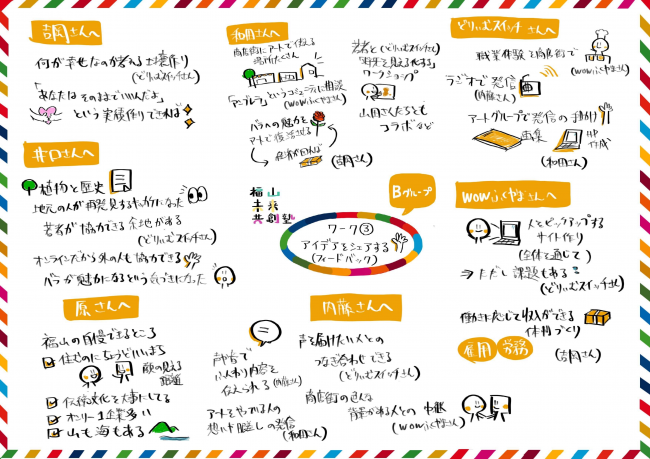 吉岡さんへ
何が幸せなのか考える土壌作り
(どりぃむスイッチさん)
「あなたはそのままでいいんだよ」
という実績作りできれば
和田さんへ
商店街にアートで使える
場所たくさん
というコミュニティに相談
(wowふくやまさん)
バラへの魅力を
アートで復活させる
(吉岡さん)
若者と(どりぃむスイッチさん)
「将来を見える化する」
ワークショップ
山田さんたちとも
コラボなど
どりぃむスイッチさんへ
職業体験を商店街で
(wowふくやまさん)
ラジオで発信
(内藤さん)
アートグループで発信のお手助け
画集
HP
作成
(和田さん)
井口さんへ
植物と歴史
地元の人が再発見するキッカケになった
若者が協力できる余地がある
(どりぃむスイッチさん)
オンラインだから外の人も協力できる
バラが魅力になるという気づきになった
福山
未来
共創塾
Bグループ
ワーク③
アイデアをシェアする
(フィードバック)
wowふくやまさんへ
人をピックアップする
サイト作り
(全体を通じて)
⇒ただし課題もある
(どりぃむスイッチさん)
働きに応じて収入ができる
体制づくり
雇用 労務
(吉岡さん)
原さんへ
福山の自慢できるところ
住むのにちょうどいいまち
顔の見える
距離
伝統文化を大事にしてる
オンリー1企業多い
山も海もある
内藤さんへ
声色で
ふんわり内容を
伝えられる
アートをやってる人の
想いや癒しの発信
(和田さん)
声を届けたい人との
つなぎ合わせできる
(どりぃむスイッチさん)
商店街のみんな
背景がある人との中継
(wowふくやまさん)